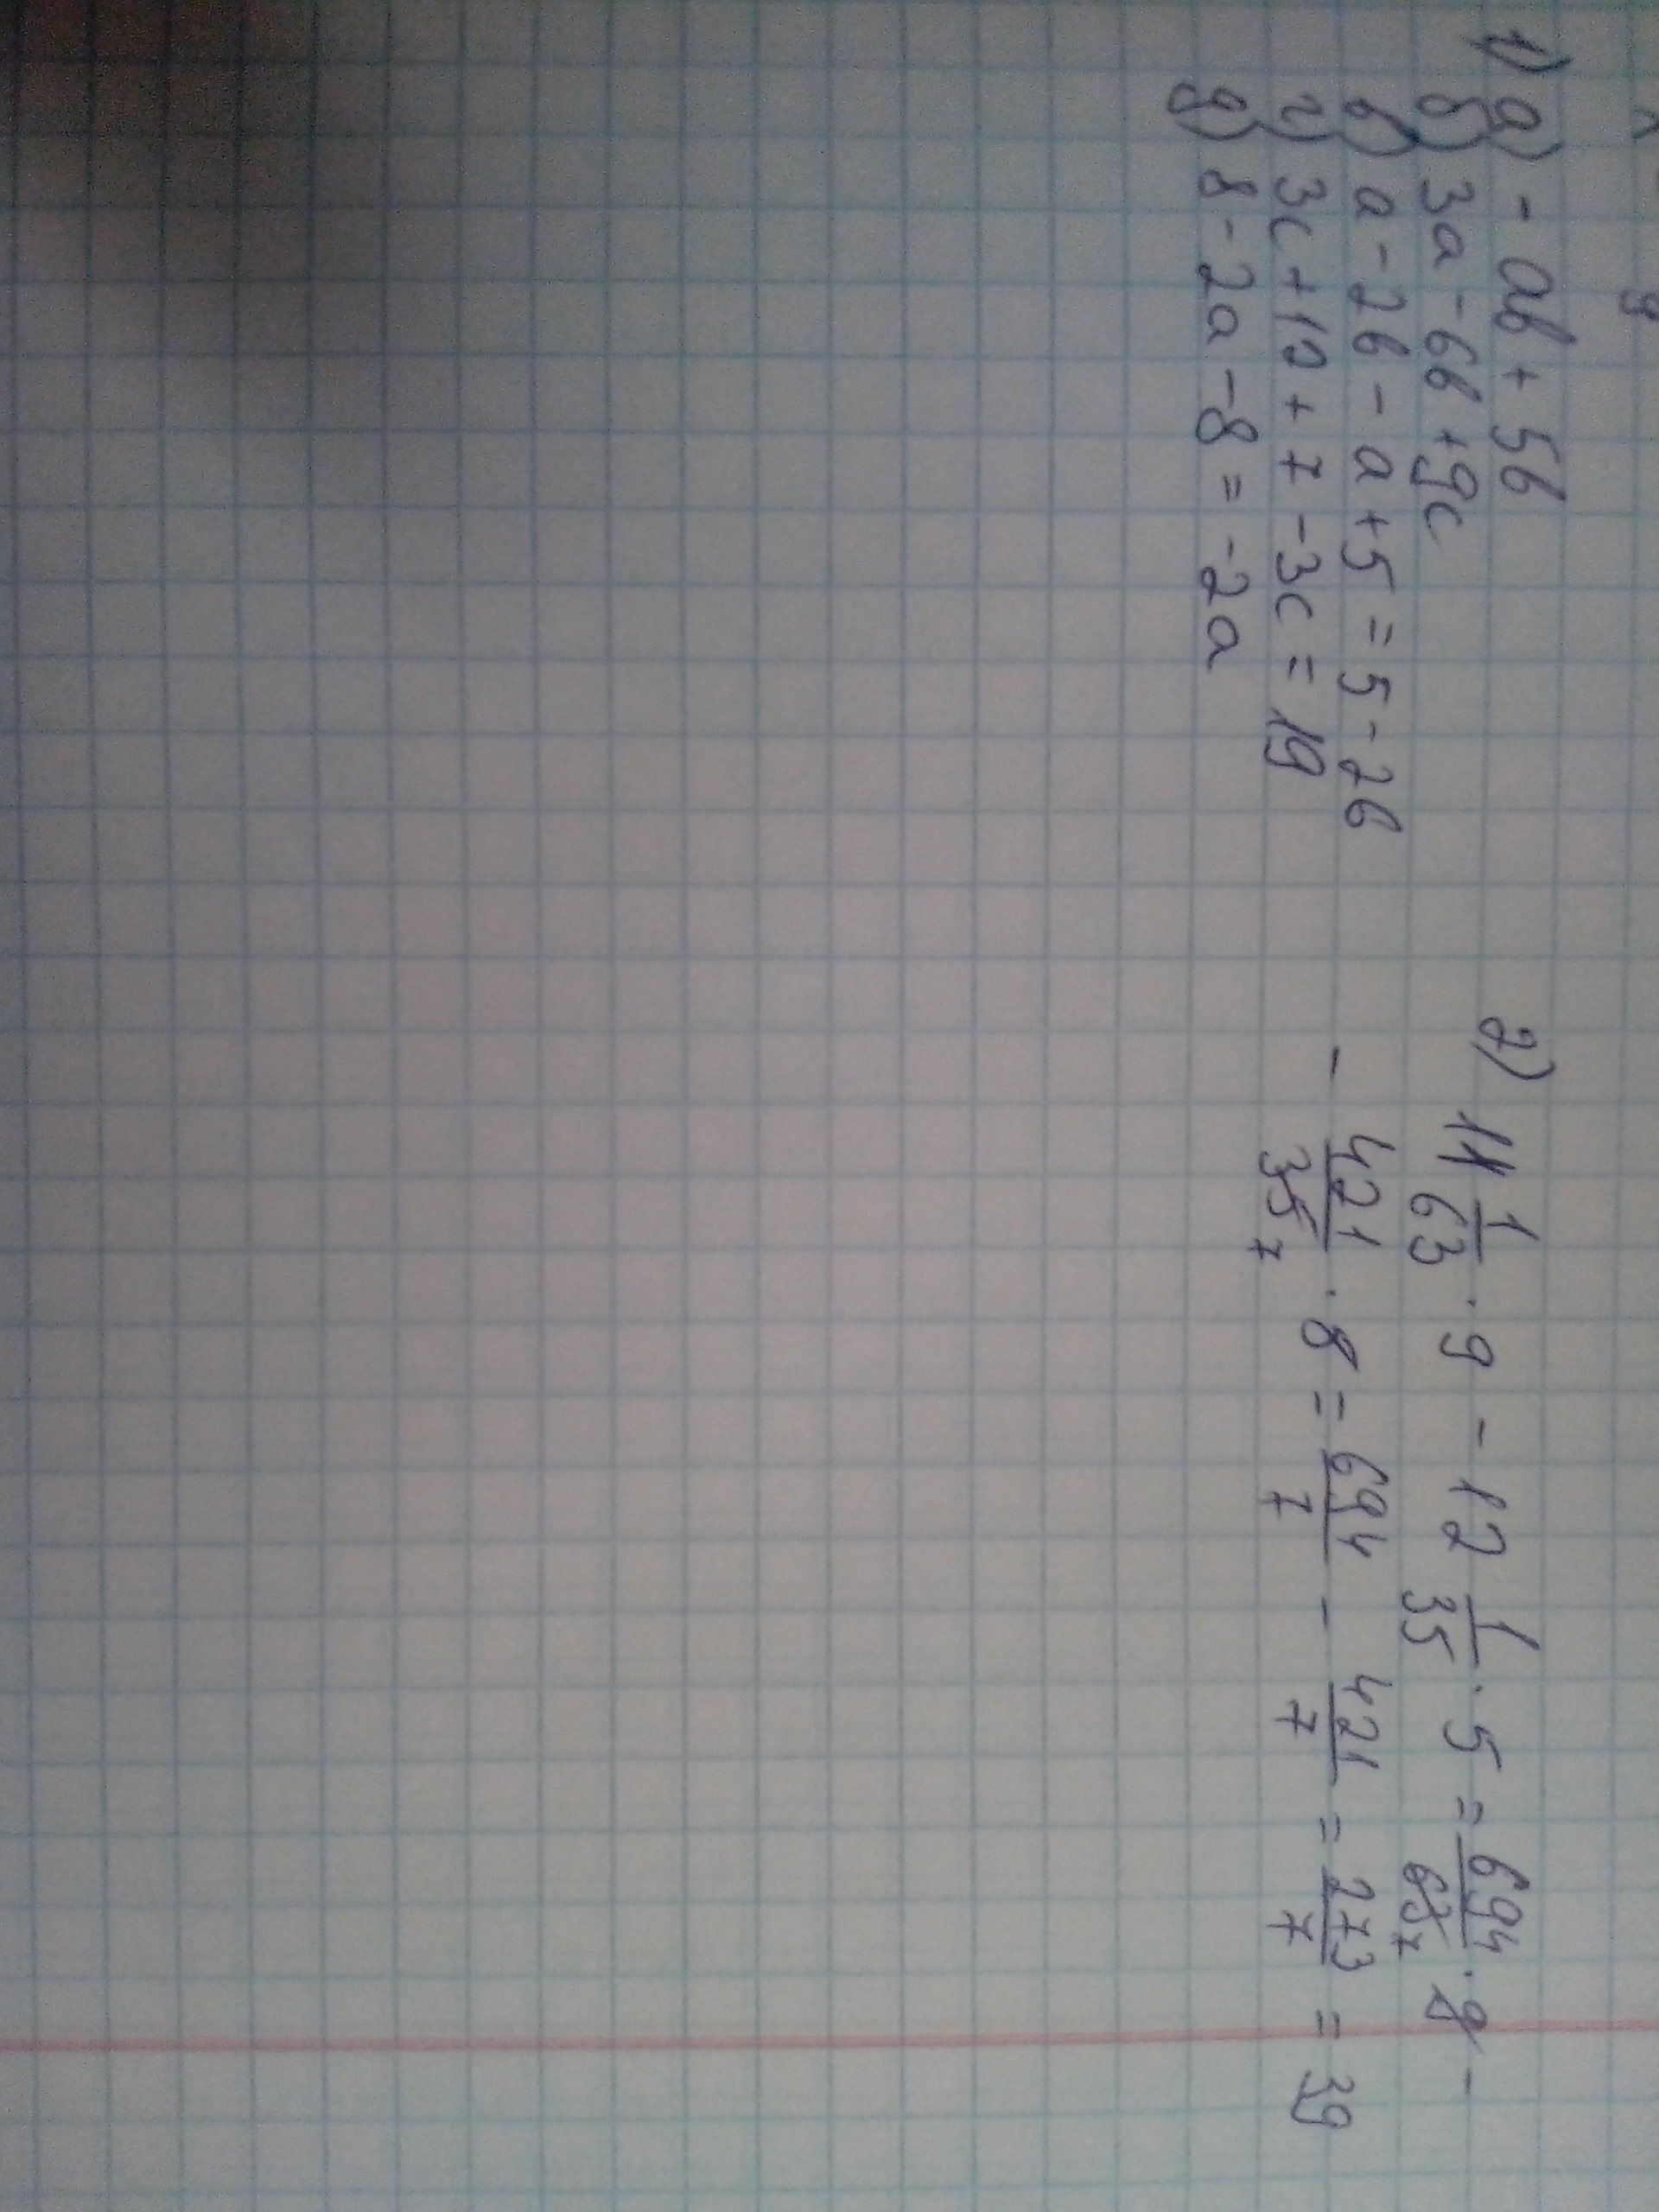 1) а) - ав + 5в
б) 3а - 6в + 9с
в) а - 2в - а + 5 = 5 - 2в
г) 3с + 10 + 7 - 3с = 19
д) 8 - 2а - 8 = -2а
2) 11 1/63 · 9 - 12 1/35 · 5 = 694/63 7 · 9 -
- 421/35 7 · 8 = 694/7 - 421/7 = 273/7 = 39